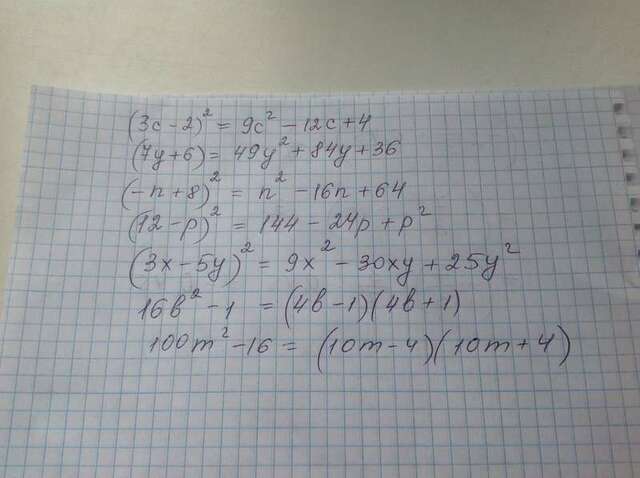 (3c-2)² = 9c² - 12c + 4
(7y+6) = 49y² + 84y + 36
(-n+8)² = n² - 16n + 64
(12-p)² = 144 - 24p + p²
(3x-5y)² = 9x² - 30xy + 25y²
16b² - 1 = (4b-1)(4b+1)
100m² - 16 = (10m-4)(10m+4)